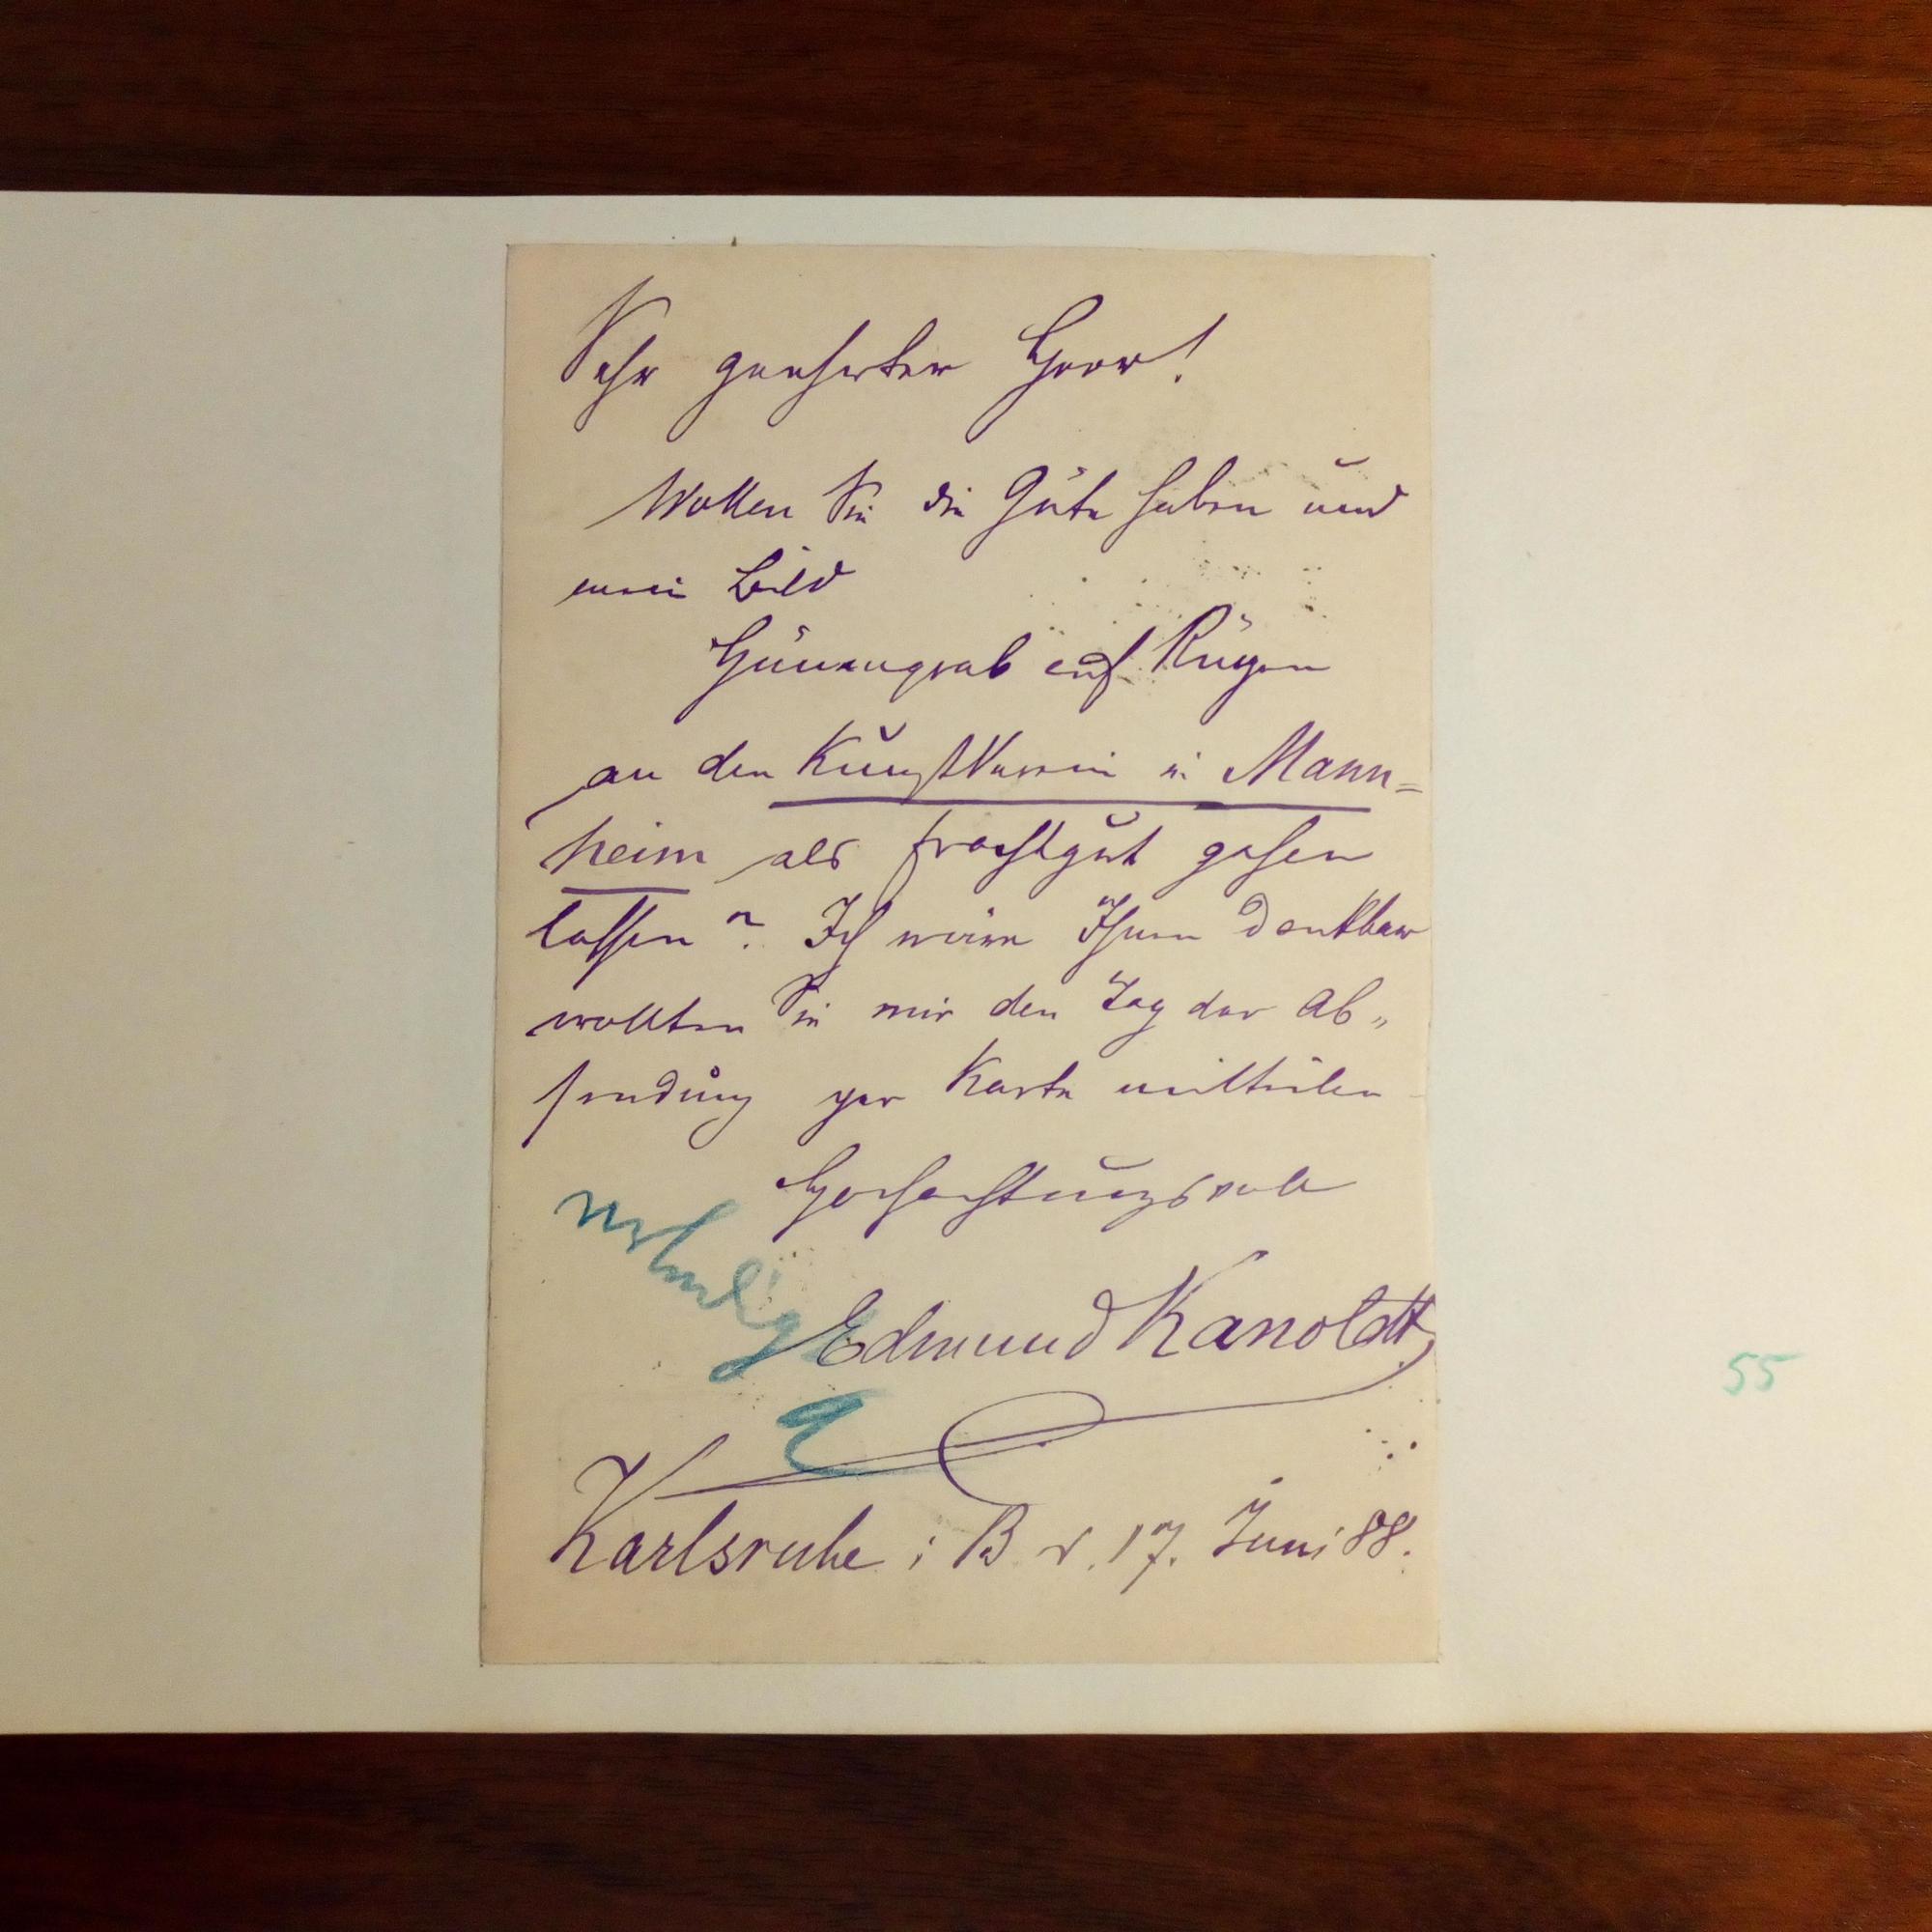 Sehr geehrter Herr!
Wollen Sie die Güte haben und
mein Bild
Hünengrab auf Rügen
an den Kunstverein in Mann=
heim als Frachtgut gehen
lassen? Ich wäre Ihnen dankbar
wollten Sie mir den Tag der Ab„
sendung per Karte mittheilen
Hochachtungsvoll
erledigt
Edmund Kanoldt
Karlsruhe i B d. 17. Juni 88.
55